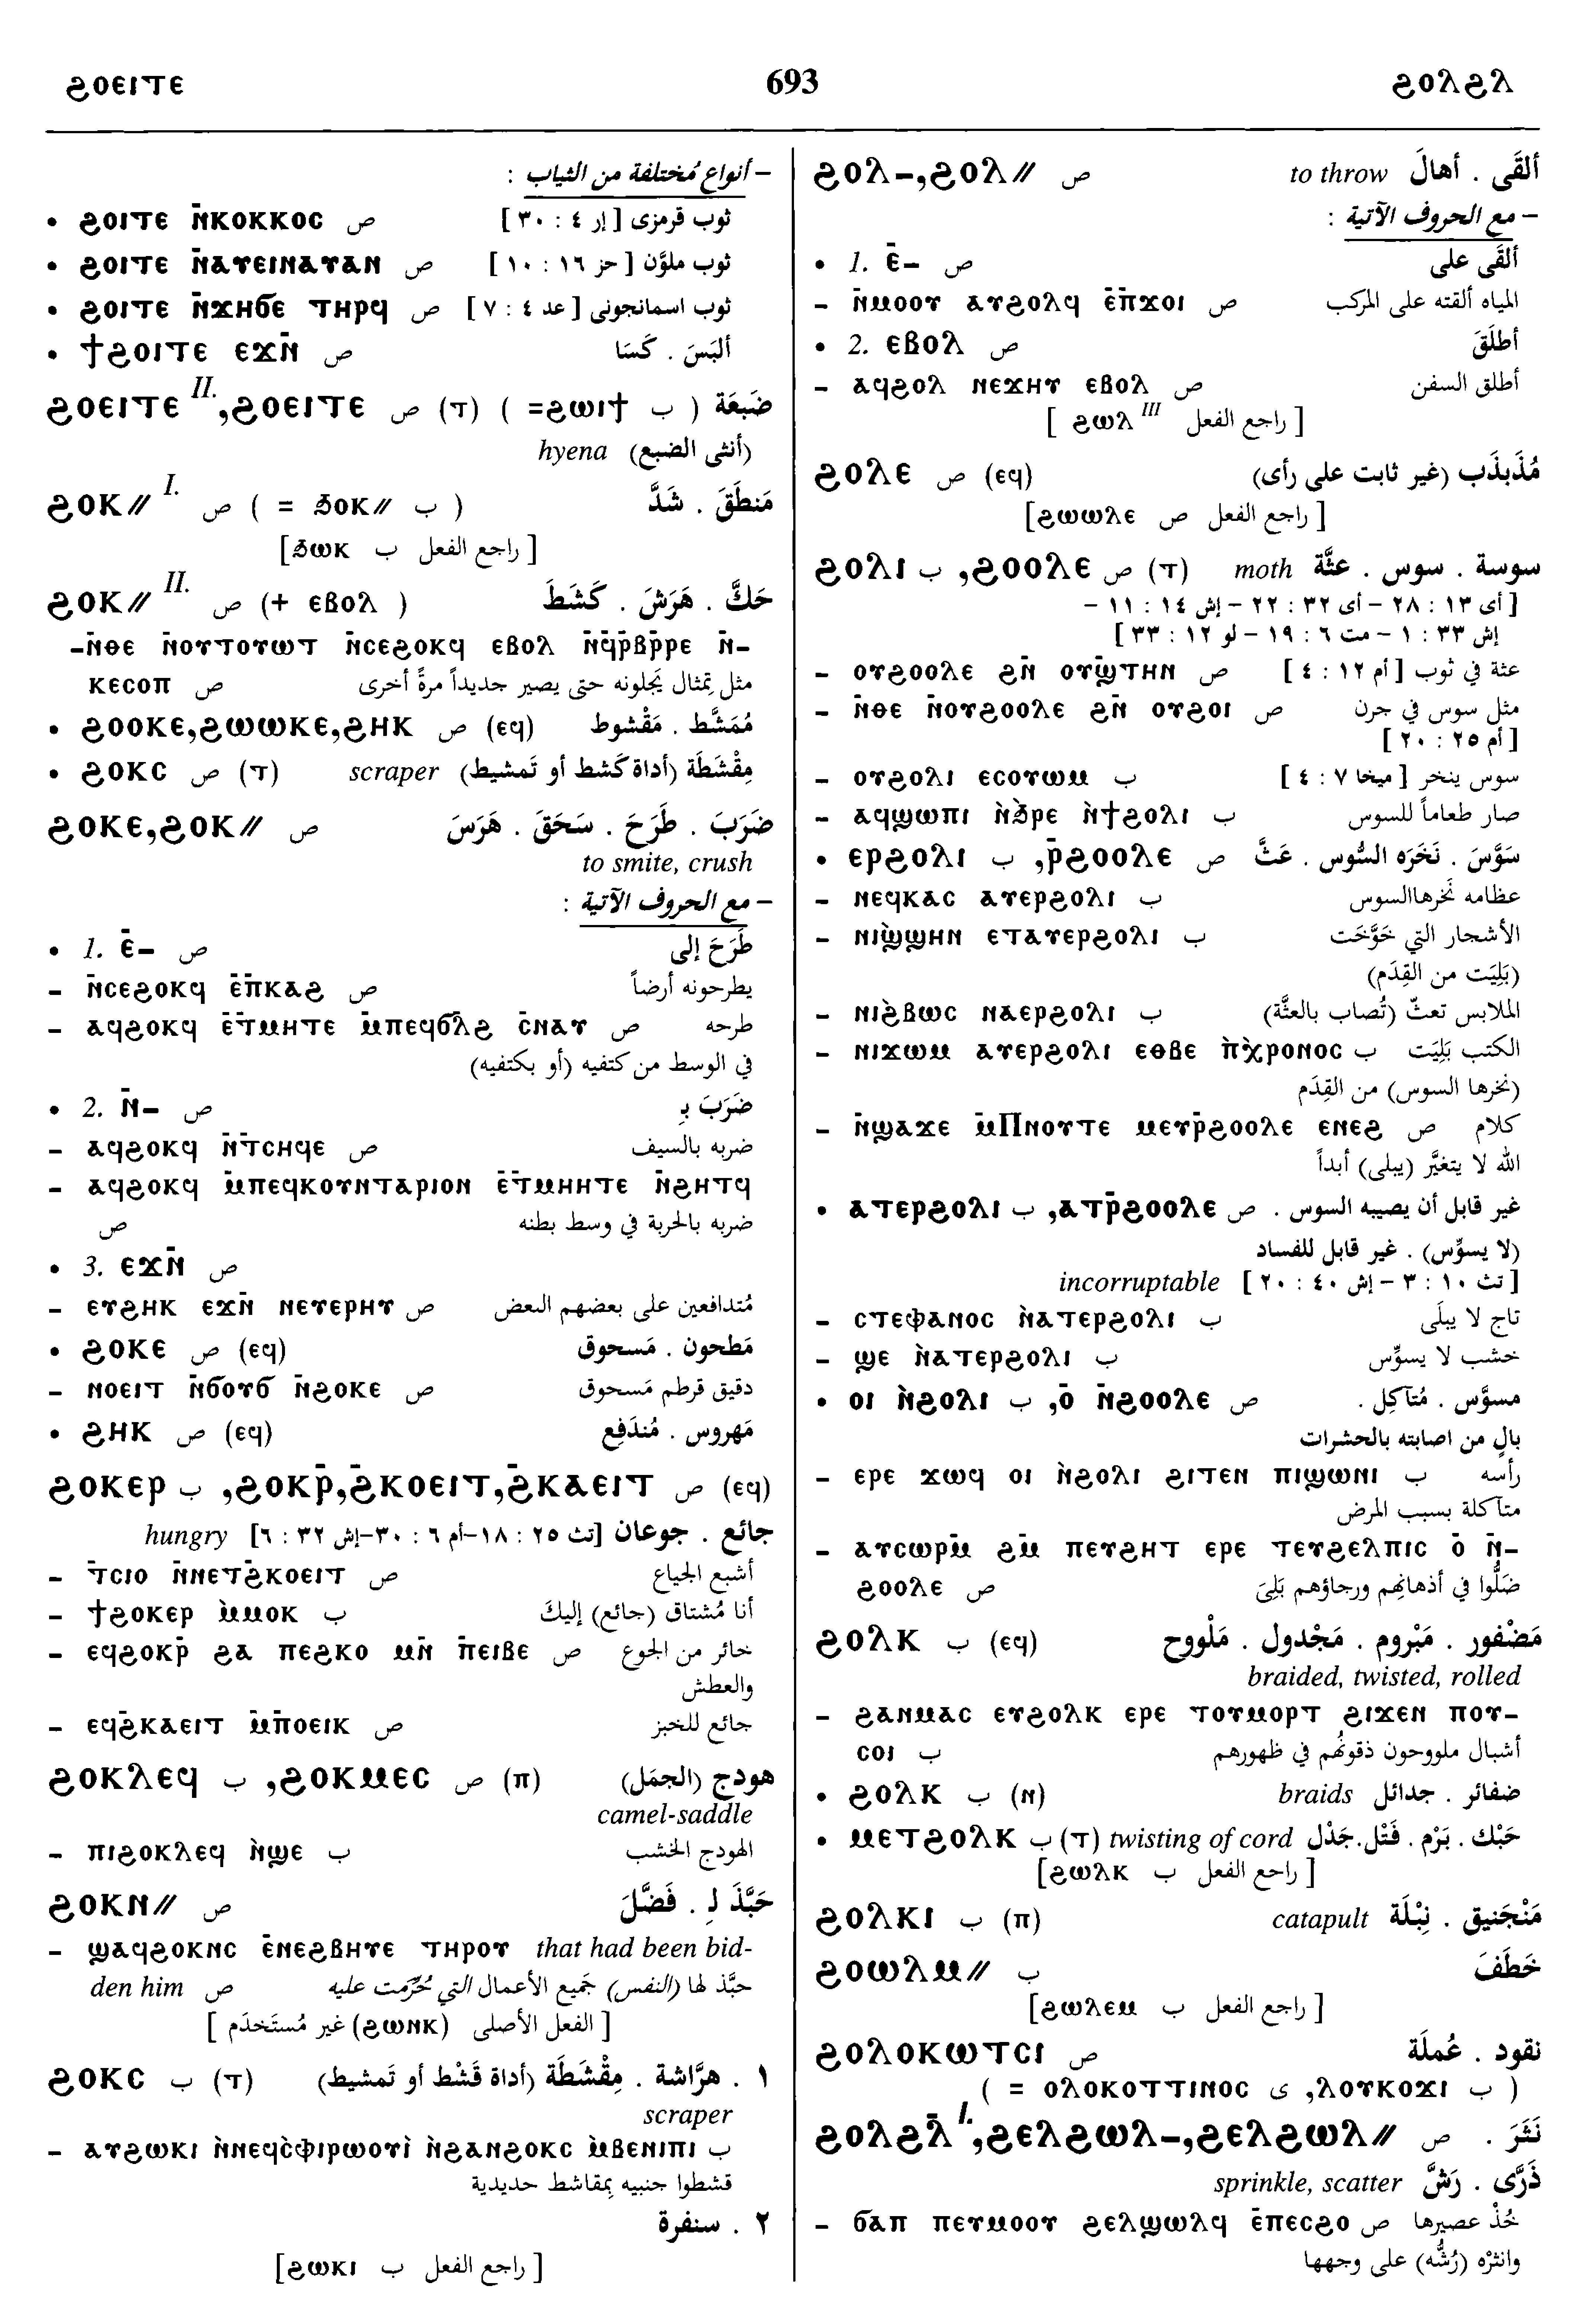 ϩⲟⲉⲓⲧⲉ 693 ϩⲟⲗϩⲗ
– أنواع مُختلفة من الثياب :
• ϩⲟⲓⲧⲉ ⲛ̄ⲕⲟⲕⲕⲟⲥ ص ثوب قرمزى [ إر ٤ : ٣٠ ]
• ϩⲟⲓⲧⲉ ⲛ̄ⲁⲩⲉⲓⲛⲁⲩⲁⲛ ص ثوب ملوَّن [ حز ١٦ : ١٠ ]
• ϩⲟⲓⲧⲉ ⲛ̄ϫⲏϭⲉ ⲧⲏⲣϥ ص ثوب اسمانجونى [ عد ٤ : ٧ ]
• ϯϩⲟⲓⲧⲉ ⲉϫⲛ̄ ص ألبَسَ . كَسَا
ϩⲟⲉⲓⲧⲉ II.,ϩⲟⲉⲓⲧⲉ ص (ⲧ) ( =ϩⲱⲓϯ ب ) ضَبعَة
hyena (أنثى الضبع)
ϩⲟⲕ// I. ص ( = ϧⲟⲕ// ب ) مَنطَقَ . شَدَّ
[ϧⲱⲕ ب راجع الفعل ]
ϩⲟⲕ// II. ص (+ ⲉⲃⲟⲗ ) حَكَّ . هَرَشَ . كَشَطَ
–ⲛ̄ⲑⲉ ⲛ̄ⲟⲩⲧⲟⲩⲱⲧ ⲛ̄ⲥⲉϩⲟⲕϥ ⲉⲃⲟⲗ ⲛ̄ϥⲣ̄ⲃⲣ̄ⲣⲉ ⲛ̄–
ⲕⲉⲥⲟⲡ ص مثل تِمثال يَجلونه حتى يصير جديداً مرةً أخرى
• ϩⲟⲟⲕⲉ,ϩⲱⲱⲕⲉ,ϩⲏⲕ ص (ⲉϥ) مُمَشَّط . مَقْشوط
• ϩⲟⲕⲥ ص (ⲧ) scraper مِقْشَطَة (أداة كَشط أو تَمشيط)
ϩⲟⲕⲉ,ϩⲟⲕ// ص ضَرَبَ . طَرَحَ . سَحَقَ . هَرَسَ
to smite, crush
– مع الحروف الآتية :
• 1. ⲉ̄– ص طَرَحَ إلى
– ⲛ̄ⲥⲉϩⲟⲕϥ ⲉ̄ⲡⲕⲁϩ ص يطرحونه أرضاً
– ⲁϥϩⲟⲕϥ ⲉ̄ⲧⲙⲏⲧⲉ ⲙ̄ⲡⲉϥϭⲗ̄ϩ ⲥ̄ⲛⲁⲩ ص طرحه
في الوسط من كتفيه (أو بكتفيه)
• 2. ⲛ̄– ص ضَرَبَ بِـ
– ⲁϥϩⲟⲕϥ ⲛ̄ⲧⲥⲏϥⲉ ص ضربه بالسيف
– ⲁϥϩⲟⲕϥ ⲙ̄ⲡⲉϥⲕⲟⲩⲛⲧⲁⲣⲓⲟⲛ ⲉ̄ⲧⲙⲏⲏⲧⲉ ⲛ̄ϩⲏⲧϥ
ص ضربه بالحربة في وسط بطنه
• 3. ⲉϫⲛ̄ ص
– ⲉⲩϩⲏⲕ ⲉϫⲛ̄ ⲛⲉⲩⲉⲣⲏⲩ ص مُتدافعين على بعضهم البعض
• ϩⲟⲕⲉ ص (ⲉϥ) مَطحون . مَسحوق
– ⲛⲟⲉⲓⲧ ⲛ̄ϭⲟⲩϭ ⲛ̄ϩⲟⲕⲉ ص دقيق قرطم مَسحوق
• ϩⲏⲕ ص (ⲉϥ) مَهروس . مُندَفِع
ϩⲟⲕⲉⲣ ب ,ϩⲟⲕⲣ̄,ϩ̄ⲕⲟⲉⲓⲧ,ϩ̄ⲕⲁⲉⲓⲧ ص (ⲉϥ)
hungry [تث ٢٥ : ١٨–أم ٦ : ٣٠–إش ٣٢ : ٦] جائع . جوعان
– ⲧ̄ⲥⲓⲟ ⲛ̄ⲛⲉⲧϩ̄ⲕⲟⲉⲓⲧ ص أشبع الجياع
– ϯϩⲟⲕⲉⲣ ⲙ̀ⲙⲟⲕ ب أنا مُشتاق (جائع) إليكَ
– ⲉϥϩⲟⲕⲣ̄ ϩⲁ ⲡⲉϩⲕⲟ ⲙⲛ̄ ⲡ̄ⲉⲓⲃⲉ ص خائر من الجوع
والعطش
– ⲉϥϩ̄ⲕⲁⲉⲓⲧ ⲙ̄ⲡⲟⲉⲓⲕ ص جائع للخبز
ϩⲟⲕⲗⲉϥ ب ,ϩⲟⲕⲙⲉⲥ ص (ⲡ) هودج (الجمَل)
camel-saddle
– ⲡⲓϩⲟⲕⲗⲉϥ ⲛ̀ϣⲉ ب الهودج الخشب
ϩⲟⲕⲛ// ص حَبَّذَ لِـ . فَضَّلَ
– ϣⲁϥϩⲟⲕⲛⲥ ⲉ̄ⲛⲉϩⲃⲏⲩⲉ ⲧⲏⲣⲟⲩ that had been bid-
den him ص حبَّذ لها (النفس) جَميع الأعمال التي حُرِّمت عليه
[ الفعل الأصلى (ϩⲱⲛⲕ) غير مُستَخدَم ]
ϩⲟⲕⲥ ب (ⲧ) ١ . هرَّاشة . مِقْشَطَة (أداة قَشْط أو تَمشيط)
scraper
– ⲁⲩϩⲱⲕⲓ ⲛ̀ⲛⲉϥⲥ̀ⲫⲓⲣⲱⲟⲩⲓ̀ ⲛ̀ϩⲁⲛϩⲟⲕⲥ ⲙ̀ⲃⲉⲛⲓⲡⲓ ب
قشطوا جنبيه بِمقاشط حديدية
٢ . سنفرة
[ϩⲱⲕⲓ ب راجع الفعل ]
ϩⲟⲗ–,ϩⲟⲗ// ص to throw ألقَى . أهالَ
– مع الحروف الآتية :
• 1. ⲉ̄– ص ألقَى على
– ⲛ̄ⲙⲟⲟⲩ ⲁⲩϩⲟⲗϥ ⲉ̄ⲡϫⲟⲓ ص المياه ألقته على المركب
• 2. ⲉⲃⲟⲗ ص أطلَقَ
– ⲁϥϩⲟⲗ ⲛⲉϫⲏⲩ ⲉⲃⲟⲗ ص أطلق السفن
[ ϩⲱⲗ III راجع الفعل ]
ϩⲟⲗⲉ ص (ⲉϥ) مُذَبذَب (غير ثابت على رأى)
[ϩⲱⲱⲗⲉ ص راجع الفعل ]
ϩⲟⲗⲓ ب ,ϩⲟⲟⲗⲉ ص (ⲧ) moth سوسة . سوس . عثَّة
[ أى ١٣ : ٢٨ – أى ٣٢ : ٢٢ – إش ١٤ : ١١ –
إش ٣٣ : ١ – مت ٦ : ١٩ – لو ١٢ : ٣٣ ]
– ⲟⲩϩⲟⲟⲗⲉ ϩⲛ̄ ⲟⲩϣ̄ⲧⲏⲛ ص عثة في ثوب [ أم ١٢ : ٤ ]
– ⲛ̄ⲑⲉ ⲛ̄ⲟⲩϩⲟⲟⲗⲉ ϩⲛ̄ ⲟⲩϩⲟⲓ ص مثل سوس في جرن
[ أم ٢٥ : ٢٠ ]
– ⲟⲩϩⲟⲗⲓ ⲉⲥⲟⲩⲱⲙ ب سوس ينخر [ ميخا ٧ : ٤ ]
– ⲁϥϣⲱⲡⲓ ⲛ̀ϧ̀ⲣⲉ ⲛ̀ϯϩⲟⲗⲓ ب صار طعاماً للسوس
• ⲉⲣϩⲟⲗⲓ ب ,ⲣ̄ϩⲟⲟⲗⲉ ص سَوَّسَ . نَخَرَه السُّوس . عَثَّ
– ⲛⲉϥⲕⲁⲥ ⲁⲩⲉⲣϩⲟⲗⲓ ب عظامه نَخرهاالسوس
– ⲛⲓϣ̀ϣⲏⲛ ⲉⲧⲁⲩⲉⲣϩⲟⲗⲓ ب الأشجار التي خَوَّخَت
(بَلِيَت من القِدَم)
– ⲛⲓϩ̀ⲃⲱⲥ ⲛⲁⲉⲣϩⲟⲗⲓ ب الملابس تعثّ (تُصاب بالعثَّة)
– ⲛⲓϫⲱⲙ ⲁⲩⲉⲣϩⲟⲗⲓ ⲉⲑⲃⲉ ⲡ̀ⲭ̀ⲣⲟⲛⲟⲥ ب الكتب بَلِيَت
(نخرها السوس) من القِدَم
– ⲛ̄ϣⲁϫⲉ ⲙ̄Ⲡⲛⲟⲩⲧⲉ ⲙⲉⲩⲣ̄ϩⲟⲟⲗⲉ ⲉⲛⲉϩ ص كلام
الله لا يتغيَّر (يبلى) أبداً
• ⲁⲧⲉⲣϩⲟⲗⲓ ب ,ⲁⲧⲣ̄ϩⲟⲟⲗⲉ ص غير قابل أن يصيبه السوس .
(لا يسوِّس) . غير قابل للفساد
incorruptable [ تث ١٠ : ٣ – إش ٤٠ : ٢٠ ]
– ⲥⲧⲉⲫⲁⲛⲟⲥ ⲛ̀ⲁⲧⲉⲣϩⲟⲗⲓ ب تاج لا يبلَى
– ϣⲉ ⲛ̀ⲁⲧⲉⲣϩⲟⲗⲓ ب خشب لا يسوِّس
• ⲟⲓ ⲛ̀ϩⲟⲗⲓ ب ,ⲟ̄ ⲛ̄ϩⲟⲟⲗⲉ ص مسوَّس . مُتآكِل .
بالٍ من اصابته بالحشرات
– ⲉⲣⲉ ϫⲱϥ ⲟⲓ ⲛ̀ϩⲟⲗⲓ ϩⲓⲧⲉⲛ ⲡⲓϣⲱⲛⲓ ب رأسه
متآكلة بسبب المرض
– ⲁⲩⲥⲱⲣⲙ̄ ϩⲙ̄ ⲡⲉⲩϩⲏⲧ ⲉⲣⲉ ⲧⲉⲩϩⲉⲗⲡⲓⲥ ⲟ̄ ⲛ̄–
ϩⲟⲟⲗⲉ ص ضَلُّوا في أذهانِهم ورجاؤهم بَلِيَ
ϩⲟⲗⲕ ب (ⲉϥ) مَضْفور . مَبْروم . مَجْدول . مَلْووح
braided, twisted, rolled
– ϩⲁⲛⲙⲁⲥ ⲉⲩϩⲟⲗⲕ ⲉⲣⲉ ⲧⲟⲩⲙⲟⲣⲧ ϩⲓϫⲉⲛ ⲡⲟⲩ–
ⲥⲟⲓ ب أشبال ملووحون ذقونُهُم في ظهورهم
• ϩⲟⲗⲕ ب (ⲛ) braids ضفائر . جدائل
• ⲙⲉⲧϩⲟⲗⲕ ب (ⲧ) twisting of cord حَبْك . بَرْم . فَتْل.جَدْل
[ϩⲱⲗⲕ ب راجع الفعل ]
ϩⲟⲗⲕⲓ ب (ⲡ) catapult مَنْجَنيق . نِبْلَة
ϩⲟⲱⲗⲙ// ب خَطَفَ
[ϩⲱⲗⲉⲙ ب راجع الفعل ]
ϩⲟⲗⲟⲕⲱⲧⲥⲓ ص نقود . عُملَة
( = ⲟⲗⲟⲕⲟⲧⲧⲓⲛⲟⲥ ى ,ⲗⲟⲩⲕⲟϫⲓ ب )
ϩⲟⲗϩⲗ̄ I.,ϩⲉⲗϩⲱⲗ–,ϩⲉⲗϩⲱⲗ// ص نَثَرَ .
sprinkle, scatter ذَرَّى . رَشَّ
– ϭⲁⲡ ⲡⲉⲩⲙⲟⲟⲩ ϩⲉⲗϣⲱⲗϥ ⲉ̄ⲡⲉⲥϩⲟ ص خُذْ عصيرها
وانثرْه (رُشَّه) على وجهها